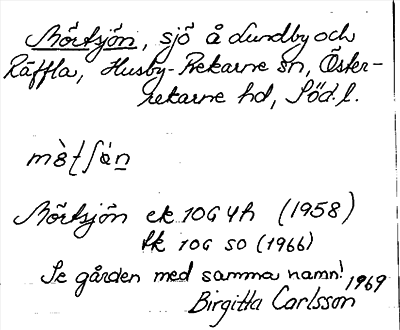 Mörtsjön, sjö å Lundby och
Räffla, Husby-Rekarne sn, Öster-
rekarne hd, Söd. l.
Mörtsjön ek 10G 4h (1958)
tk 10G SO (1966)
Se gården med samma namn!
1969
Birgitta Carlsson